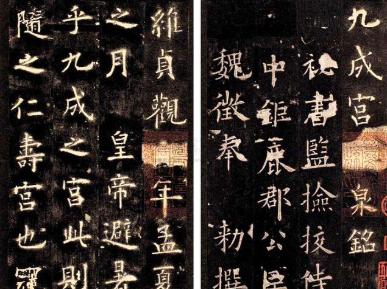 九成宫 泉銘
秘書監撿挍侍
中鉅鹿郡公臣
魏徵奉 勑撰
維貞觀 年孟夏
之月 皇帝避暑
乎九成之宫此則
隨之仁壽宫也冠